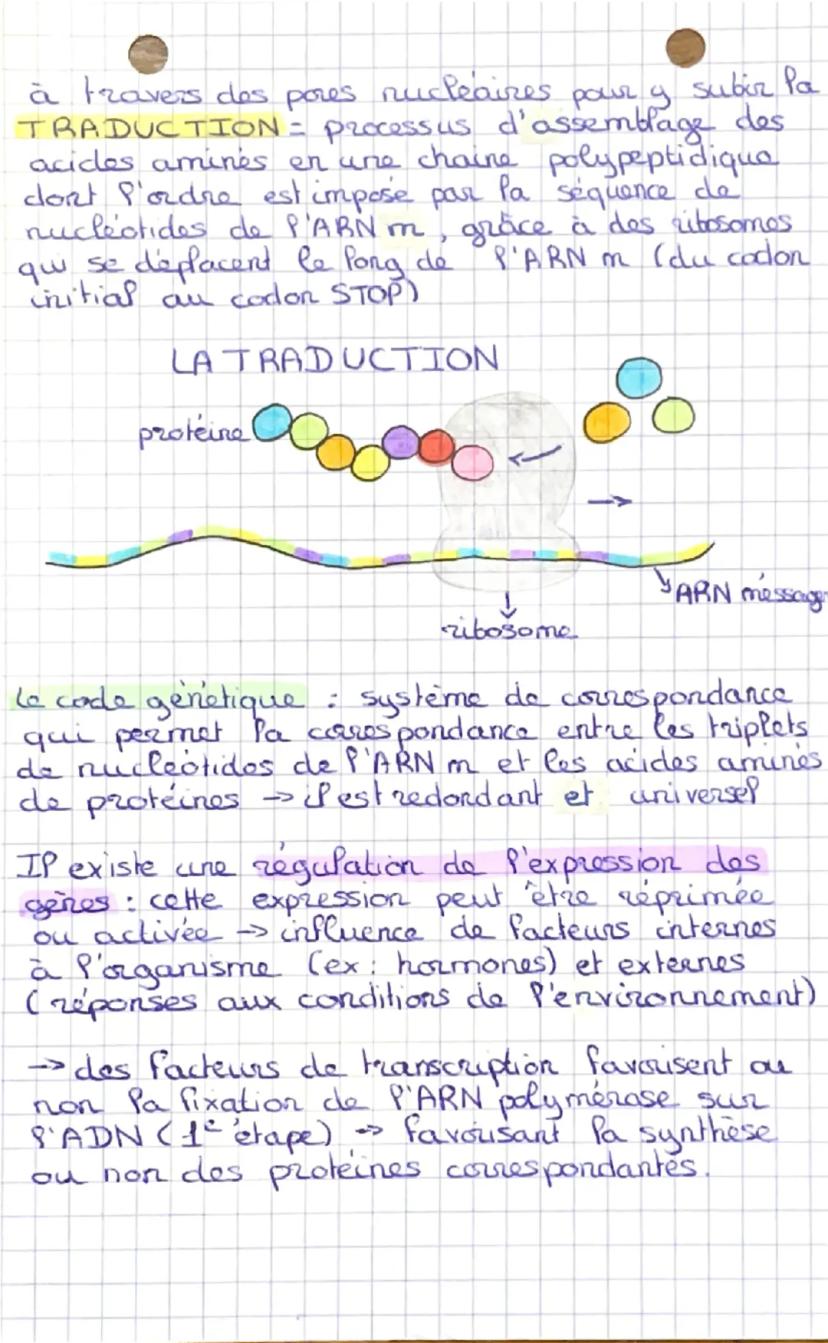 à travers des pores nucléaires pour y subir la
TRADUCTION = processus d'assemblage des
acides aminés en une chaine polypeptidique
dont l'ordre est imposé par la séquence de
nucléotides de l'ARN m, grâce à des ribosomes
qui se déplacent le long de l'ARN m (du codon
initial au codon STOP)
LA TRADUCTION
protéine
ARN messag
ribosome
Le code génétique : système de correspondance
qui permet la correspondance entre les triplets
de nucléotides de l'ARN m et les acides aminés
de protéines → il est redondant et universel
Il existe une régulation de l'expression des
gènes : cette expression peut être réprimée
ou activée → influence de facteurs internes
à l'organisme (ex : hormones) et externes
(réponses aux conditions de l'environnement)
→ des facteurs de transcription favorisent ou
non la fixation de l'ARN polymérase sur
l'ADN (1e étape) → favorisant la synthèse
ou non des protéines correspondantes.